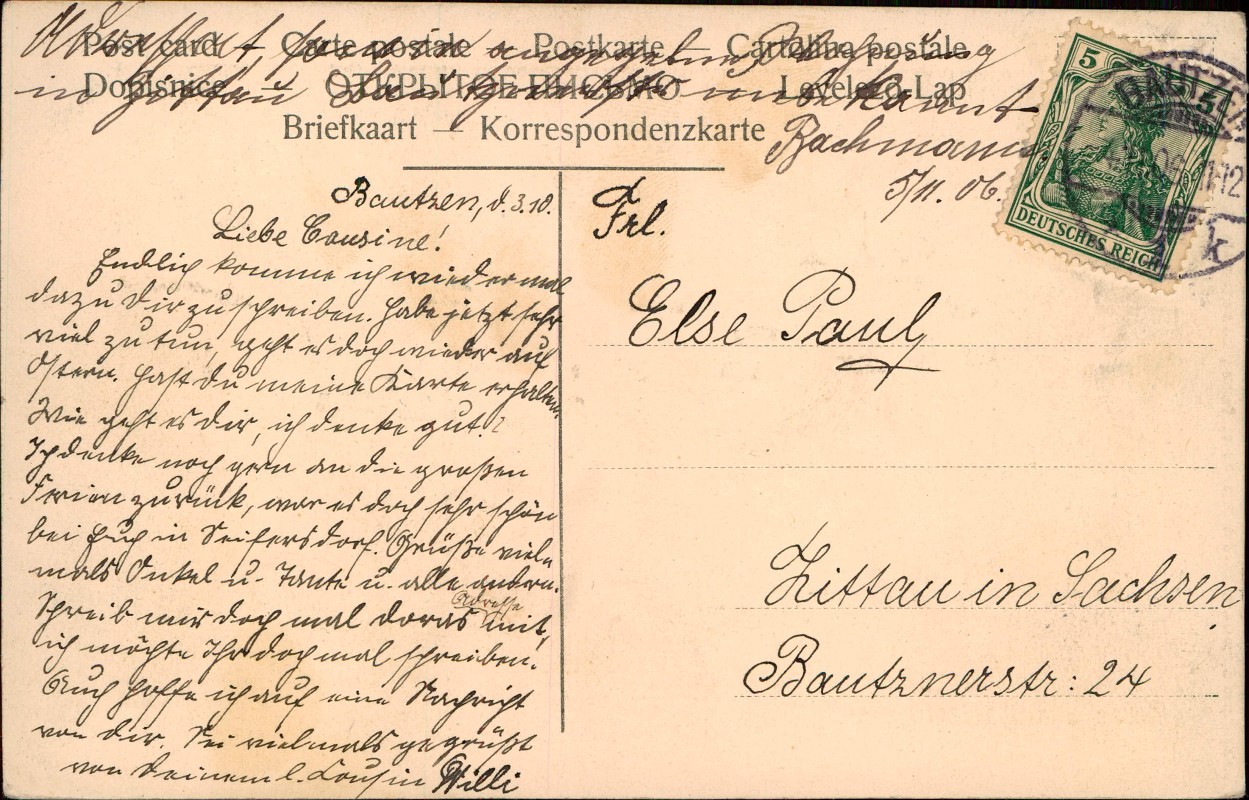 Post card — Carte postale — Postkarte — Cartolina postale
Dopisnice — ОТКРЫТОЕ ПИСЬМО — Levelező-Lap
Briefkaart — Korrespondenzkarte
in Zittau unbekannt
Bachmann.
5/11. 06.
5
5
DEUTSCHES REICH
BAUTZEN
11-12
k
Bautzen, d. 3.10.
Liebe Cousine!
Endlich komme ich wieder mal
dazu Dir zu schreiben. Habe jetzt sehr
viel zu tun, geht es doch wieder auf
Ostern. Hast du meine Karte erhalten.
Wie geht es dir, ich denke gut.?
Ich denke noch gern an die großen
Ferien zurück, war es doch sehr schön
bei Euch in Seifersdorf. Grüße viel-
mals Onkel u. Tante u. alle andern.
Schreib mir doch mal Doras Adresse mit,
ich möchte Ihr doch mal schreiben.
Auch hoffe ich auf eine Nachricht
von dir. Sei vielmals gegrüßt
von Deinem l. Cousin Willi
Frl.
Else Paul
Zittau in Sachsen
Bautznerstr: 24